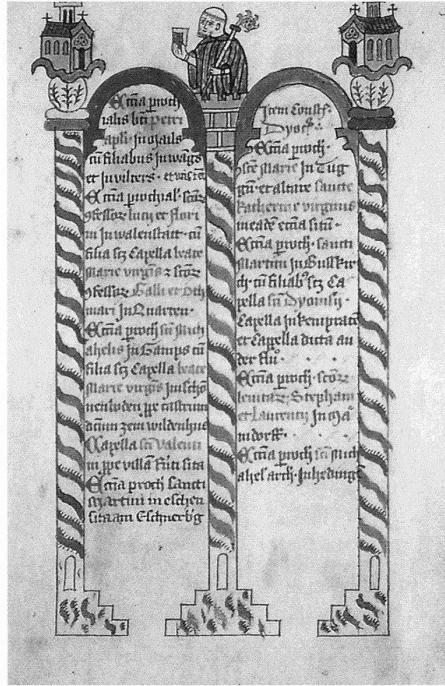 Ecc̄ia p̄roch
ialis bt̄i petri
ap̄li In Ragaꝫ
cū filiabus In wags
et In vilters
Ecc̄ia p̄rochial̄ sc̄or
ꝯfessor lucij et flori
ni In walenstatt cū
filia scꝫ Capella beate
Marie virgis ⁊ sc̄or
ꝯfessor Galli et Oth
mari In Quarten
Ecc̄ia p̄roch sc̄i Mich
ahelis In Gamps cū
filia scꝫ Capella beate
Marie virgis In schō
ꝓpe castrum
dictum zem wildenhus
Capella sc̄i valenti
ni ꝓpe villā sita
Ecc̄ia p̄roch sancti
Martini in eschen
sita am Eschnerb̄g
Item Const̄
Dyoc̄
Ecc̄ia p̄roch
sc̄e Marie In Tug
gn̄ et altare sancte
katherine virginis
in eadē ecc̄ia sitū
Ecc̄ia p̄roch sancti
Martini In Busskir
ch cū filiab⁹ scꝫ Ca
pella sc̄i Dyonisij
Capella In kempratē
et Capella dicta au
der
Ecc̄ia p̄roch sc̄or
leuitar Stephani
et Laurentij In Mā
ndorff
Ecc̄ia p̄roch sc̄i Mich
ahel arch In hedinge